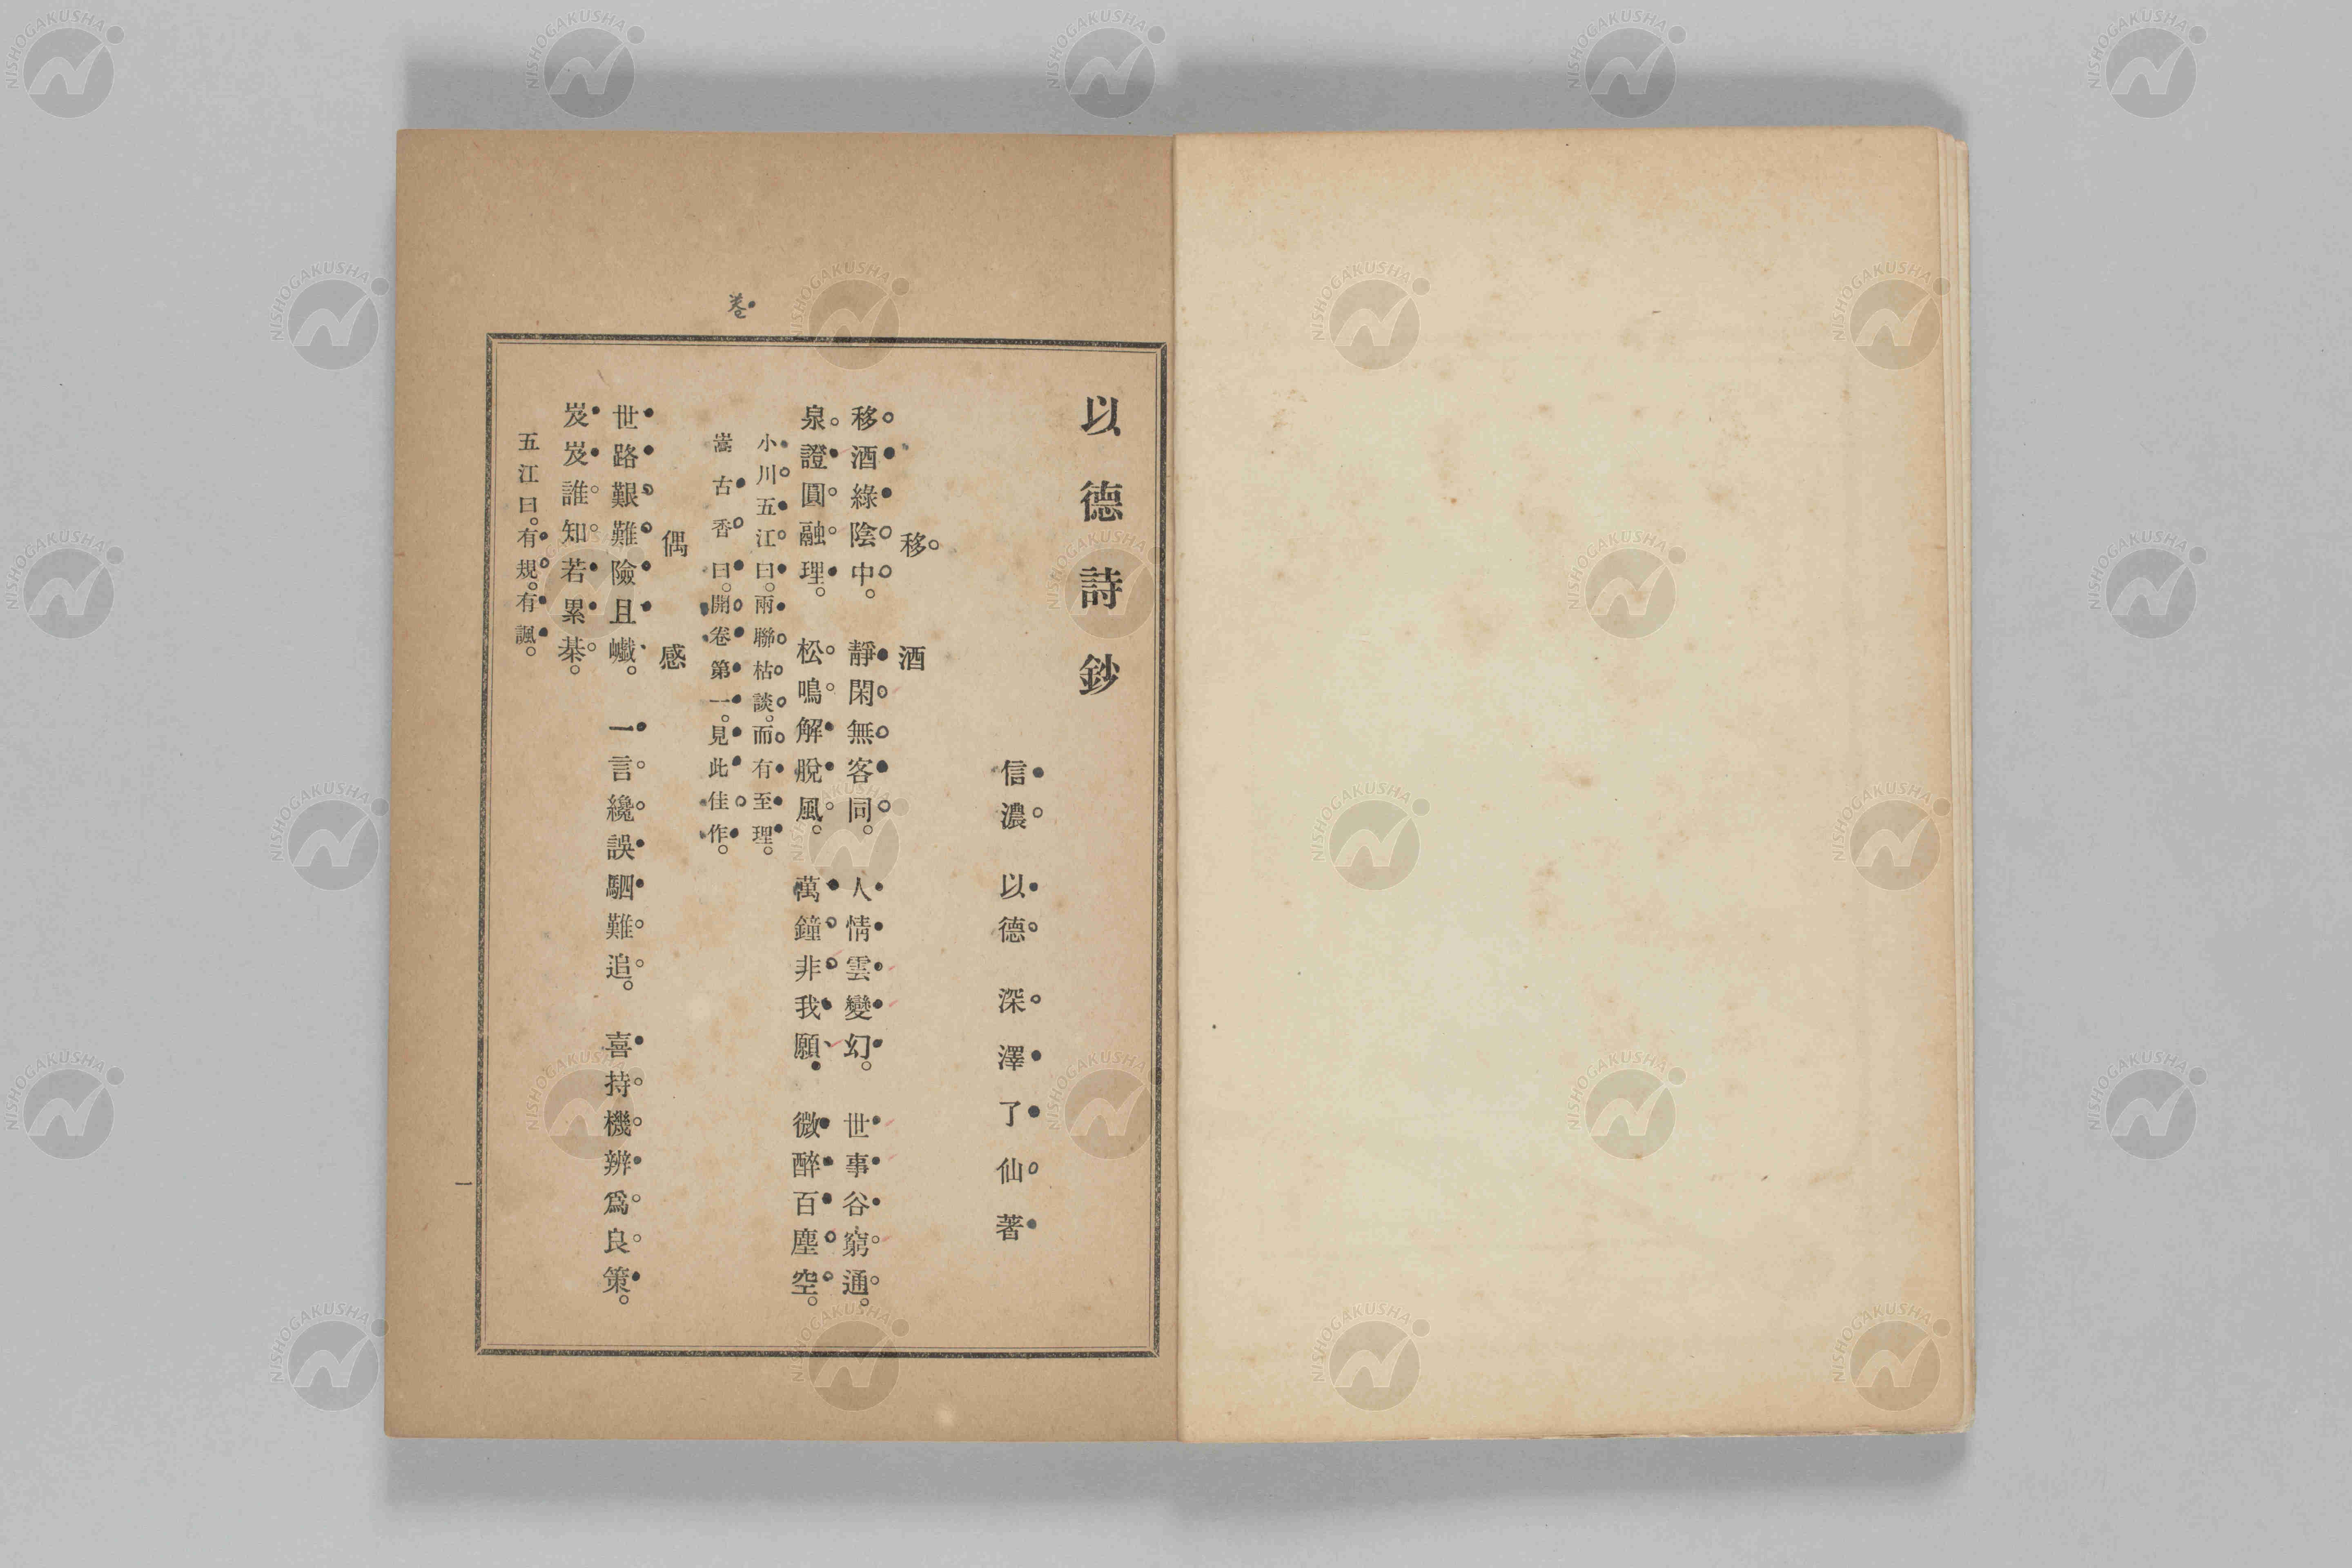 以德詩鈔
信濃 以德 深澤了仙著
移酒
移酒綠陰中。 靜閑無客同。 人情雲變幻。 世事谷窮通。
泉證圓融理。 松鳴解脫風。 萬鐘非我願. 微醉百塵空。
小川五江曰。兩聯枯談。而有至理。
嵩古香曰。開卷第一。見此佳作。
卷
偶感
世路艱難險且巇。 一言纔誤駟難追。 喜持機辨爲良策。
岌岌誰知若累棊。
五江曰。有規。有諷。
一
NISHOGAKUSHA